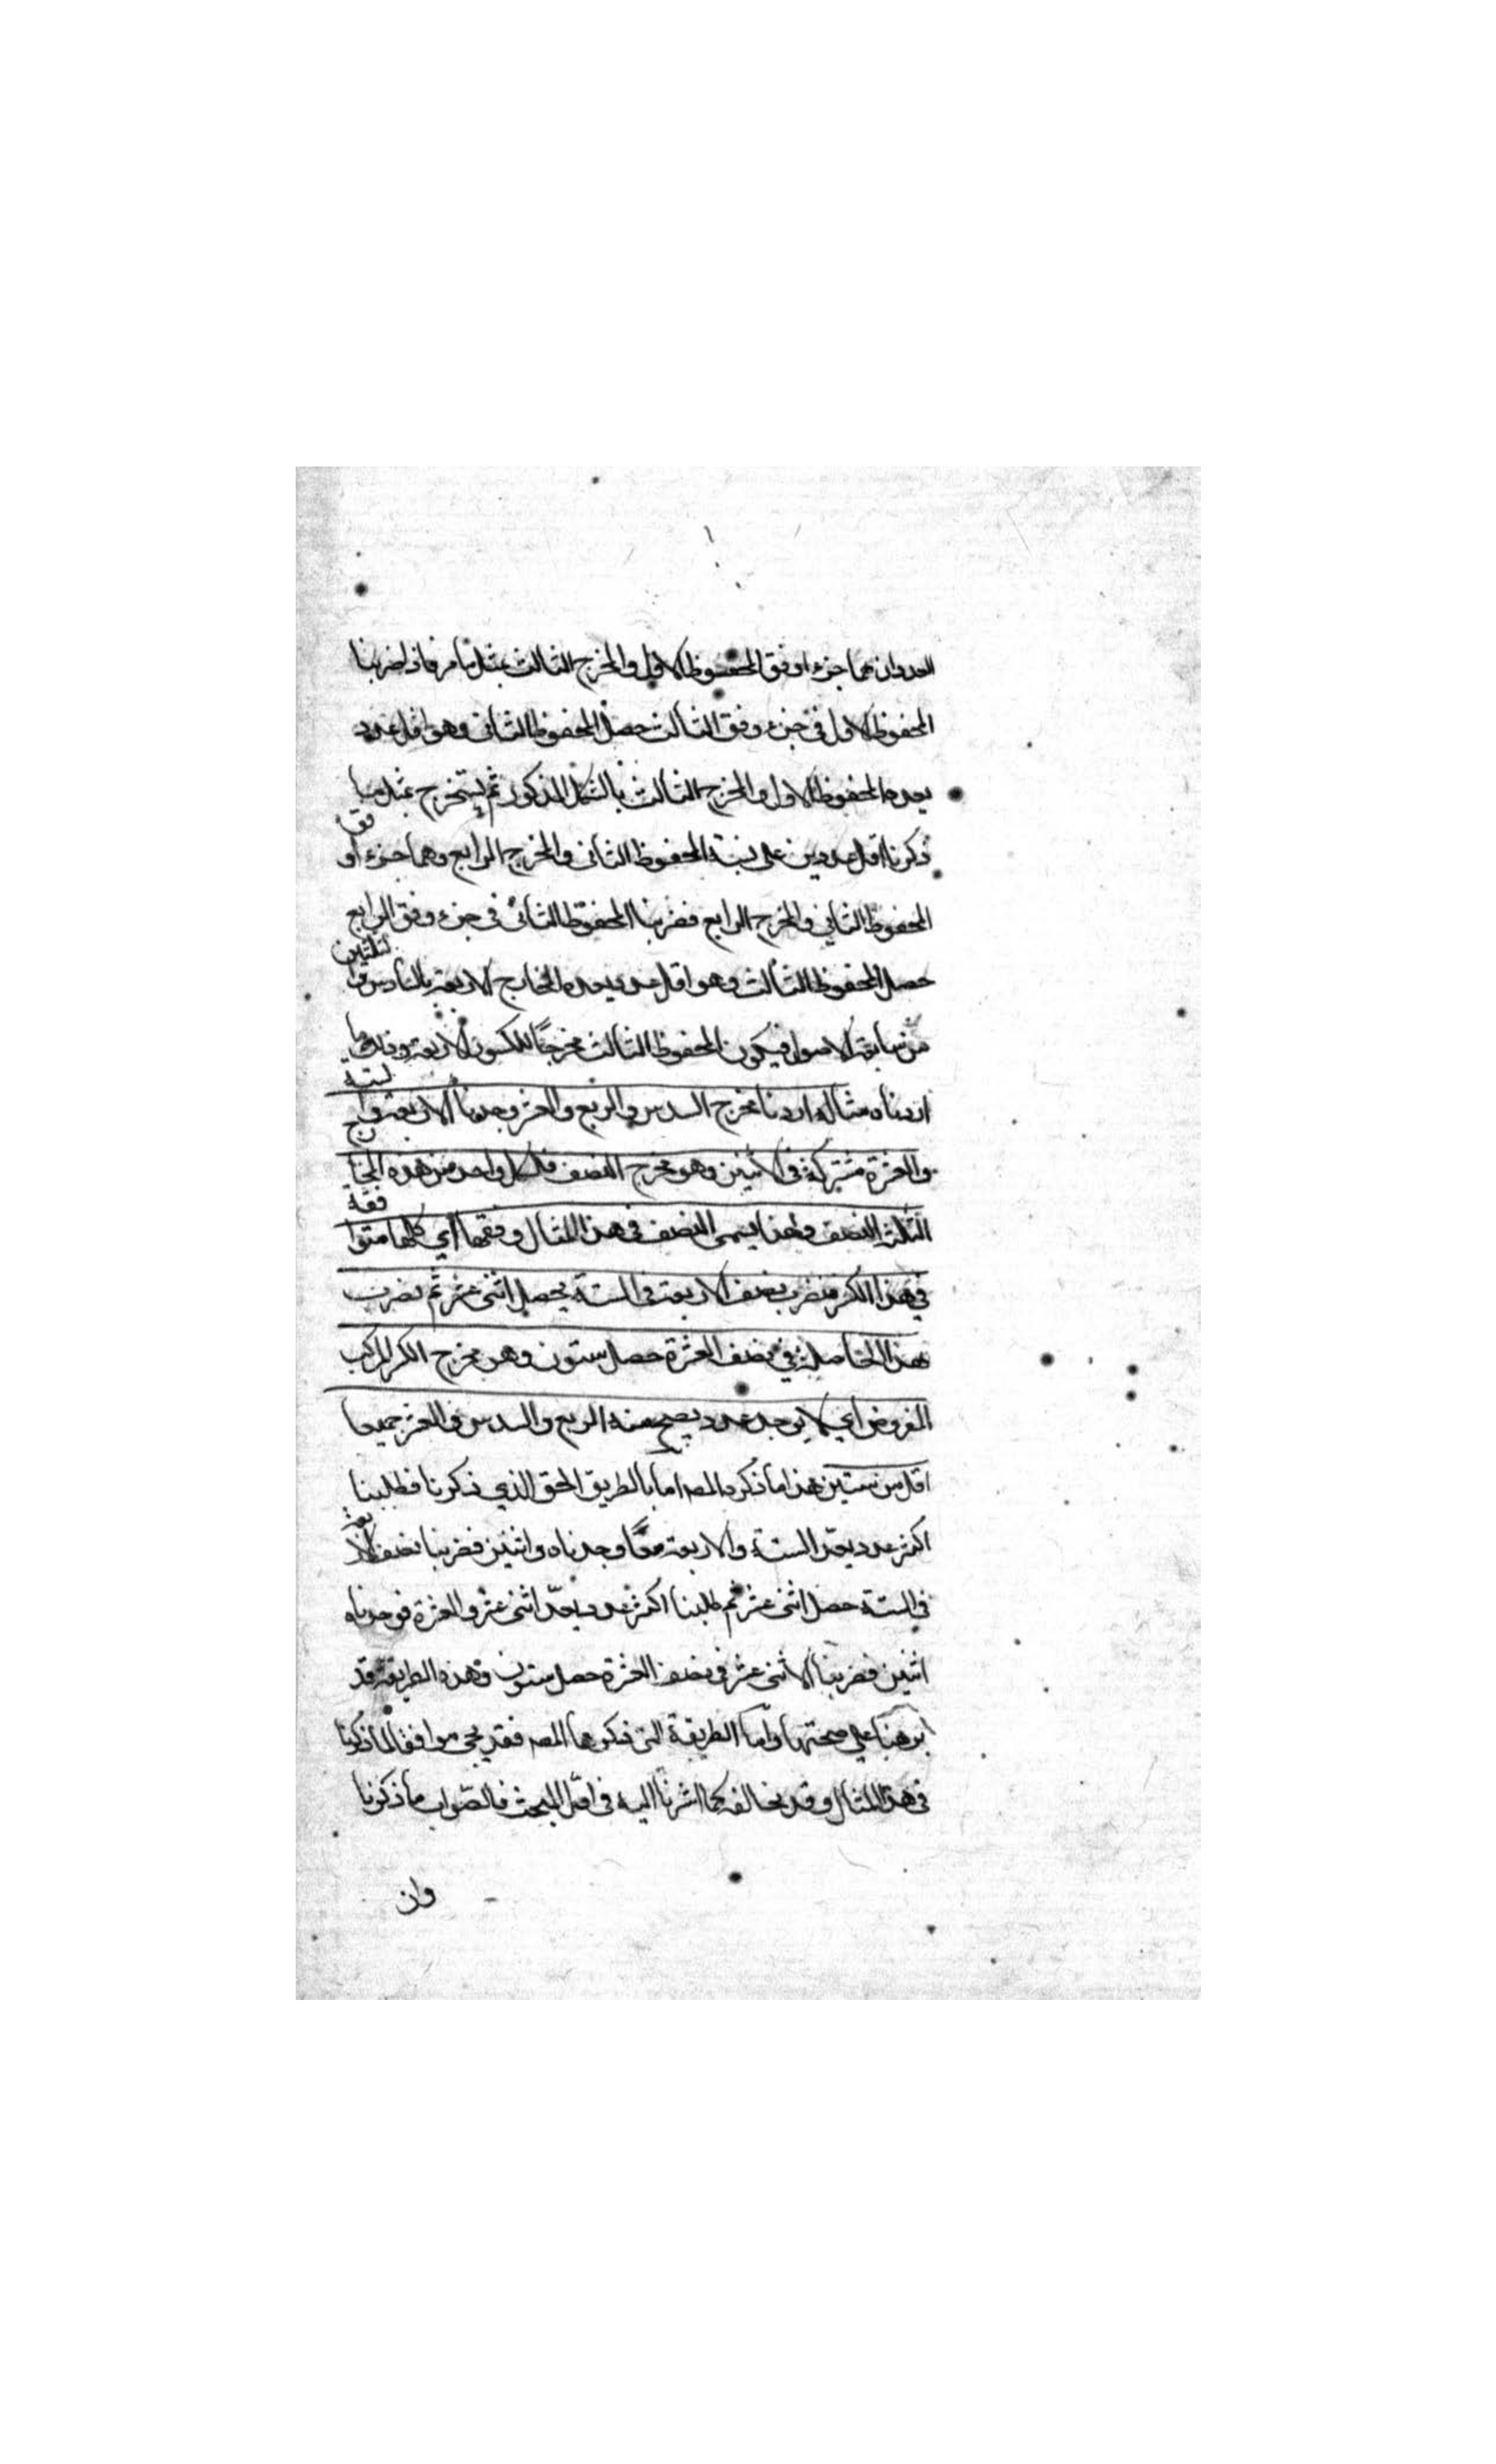 العددان هما جزءا وفق المحفوظ الاول والمخرج الثالث بمثل ما مر فاذا ضربنا
المحفوظ الاول في جزء وفق الثالث حصل المحفوظ الثاني وهو اقل عدد
يعده المحفوظ الاول والمخرج الثالث بالشكل المذكور ثم يستخرج بمثل ما
ذكرنا اقل عددين على نسبة المحفوظ الثاني والمخرج الرابع وهما جزءا وفق
المحفوظ الثاني والمخرج الرابع فضربنا المحفوظ الثاني في جزء وفق الرابع
حصل المحفوظ الثالث وهو اقل عدد يعده المخارج الاربعة بالسادس والثلثين
من سابعة الاصول فيكون المحفوظ الثالث مخرجًا للكسور الاربعة وذلك ما
اردناه مثاله اردنا مخرج السدس والربع والعشر وجدنا الاربعة والستة
والعشرة مشتركة في الاثنين وهو مخرج النصف فلكل واحد من هذه المخارج
الثلثة النصف وهذا يسمى النصف في هذا المثال وفقها اي كلها متوافقة
في هذا الكسر فنضرب نصف الاربعة في الستة يحصل اثنى عشر ثم نضرب
هذا الحاصل في نصف العشرة حصل ستون وهو مخرج الكسر المركب
المفروض اي لا يوجد عدد يصح منه الربع والسدس والعشر جميعا
اقل من ستين هذا ما ذكره المصـ اما بالطريق الحق الذي ذكرنا فطلبنا
اكثر عدد يعد الستة والاربعة معًا وجدناه اثنين فضربنا نصف الاربعة
في الستة حصل اثنى عشر ثم طلبنا اكثر عدد يعدّ اثنى عشر والعشرة فوجدناه
اثنين فضربنا الاثنى عشر في نصف العشرة حصل ستون وهذه الطريقة قد
برهنا على صحتها وأما الطريقة التى ذكرها المصـ فقد يجئ موافقا لما ذكرنا
في هذا المثال وقد يخالفه كما اشرنا اليه في اول المبحث فالصواب ما ذكرنا
وان